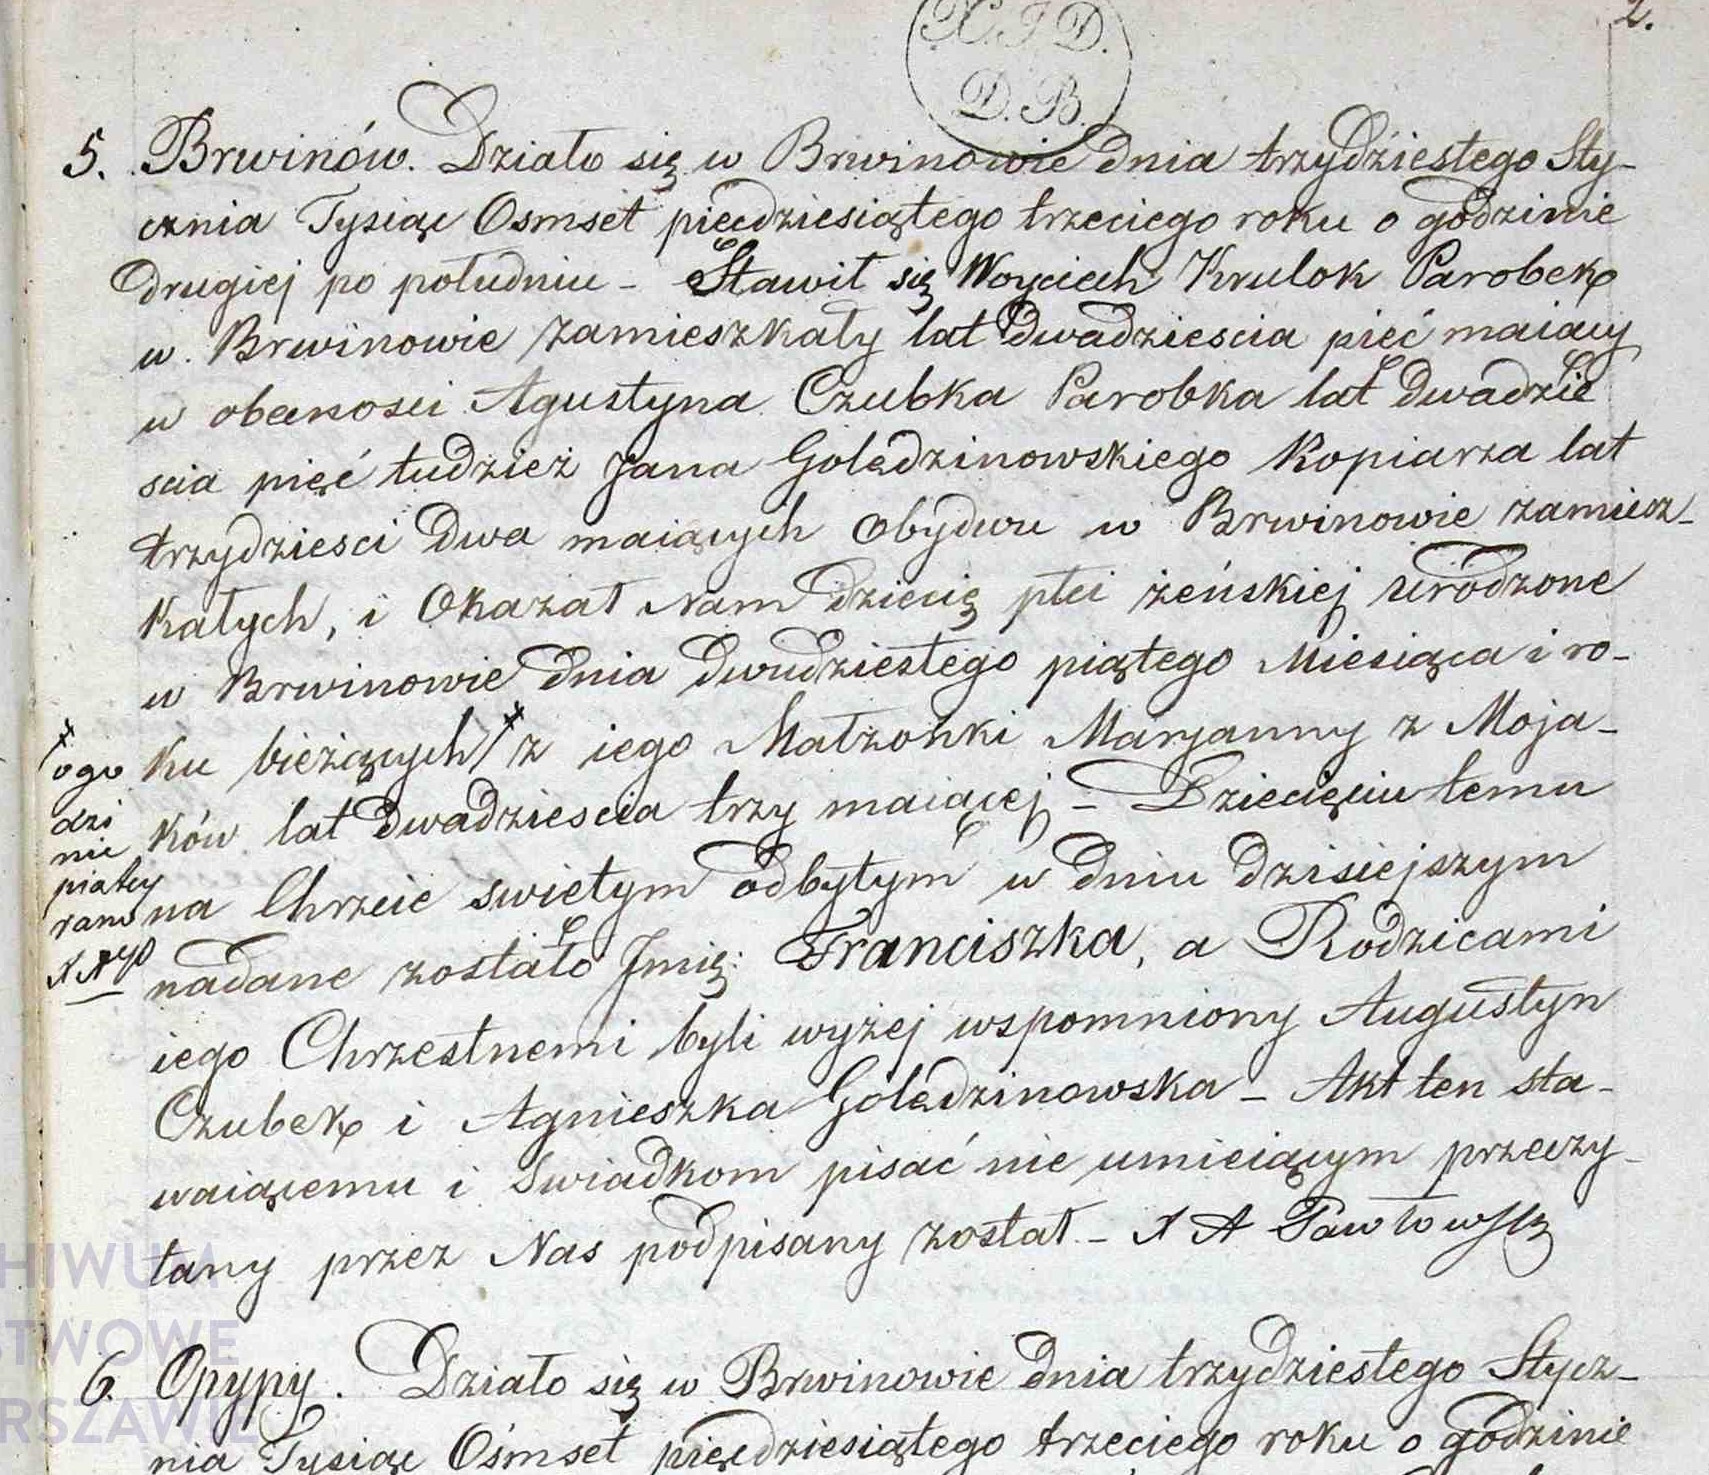 2.
X. J D.
D. B.
5. Brwinów. Działo się w Brwinowie dnia trzydźiestego Sty-
cznia Tysiąc Osmset piecdziesiątego trzeciego roku o godzinie
drugiej po południu - Stawił się Woyciech Krulok Parobek
w Brwinowie zamieszkały lat dwadziescia pieć maiacy
w obecnosci Agustyna Czubka Parobka lat dwadzie
scia pięć tudzież Jana Golędzinowskiego Kopiarza lat
trzydziesci dwa maiących obydwu w Brwinowie zamiesz-
kałych, i Okazał Nam dziecię płci żeńskiej urodzone
w Brwinowie dnia dwudziestego piątego Miesiąca i ro-
ku bieżących z iego Małżonki Maryanny z Moja-
ków lat dwadziescia trzy maiącej - Dziecięciu temu
na Chrzcie swietym odbytym w dniu dzisiejszym
nadane zostało Jmię: Franciszka, a Rodzicami
iego Chrzestnemi byli wyżej wspomniony Augustyn
Czubek i Agnieszka Golędzinowska - Akt ten sta-
waiącemu i Swiadkom pisać nie umieiącym przeczy-
tany przez Nas podpisany został - X A Pawłowski
ogo
dzi
nie
piatey
rano
6. Opypy. Działo się w Brwinowie dnia trzydziestego Stycz-
nia Tysiąc Ośmset pięcdziesiątego trzeciego roku o godzinie
HIWUM
STWOWE
RSZAWIE